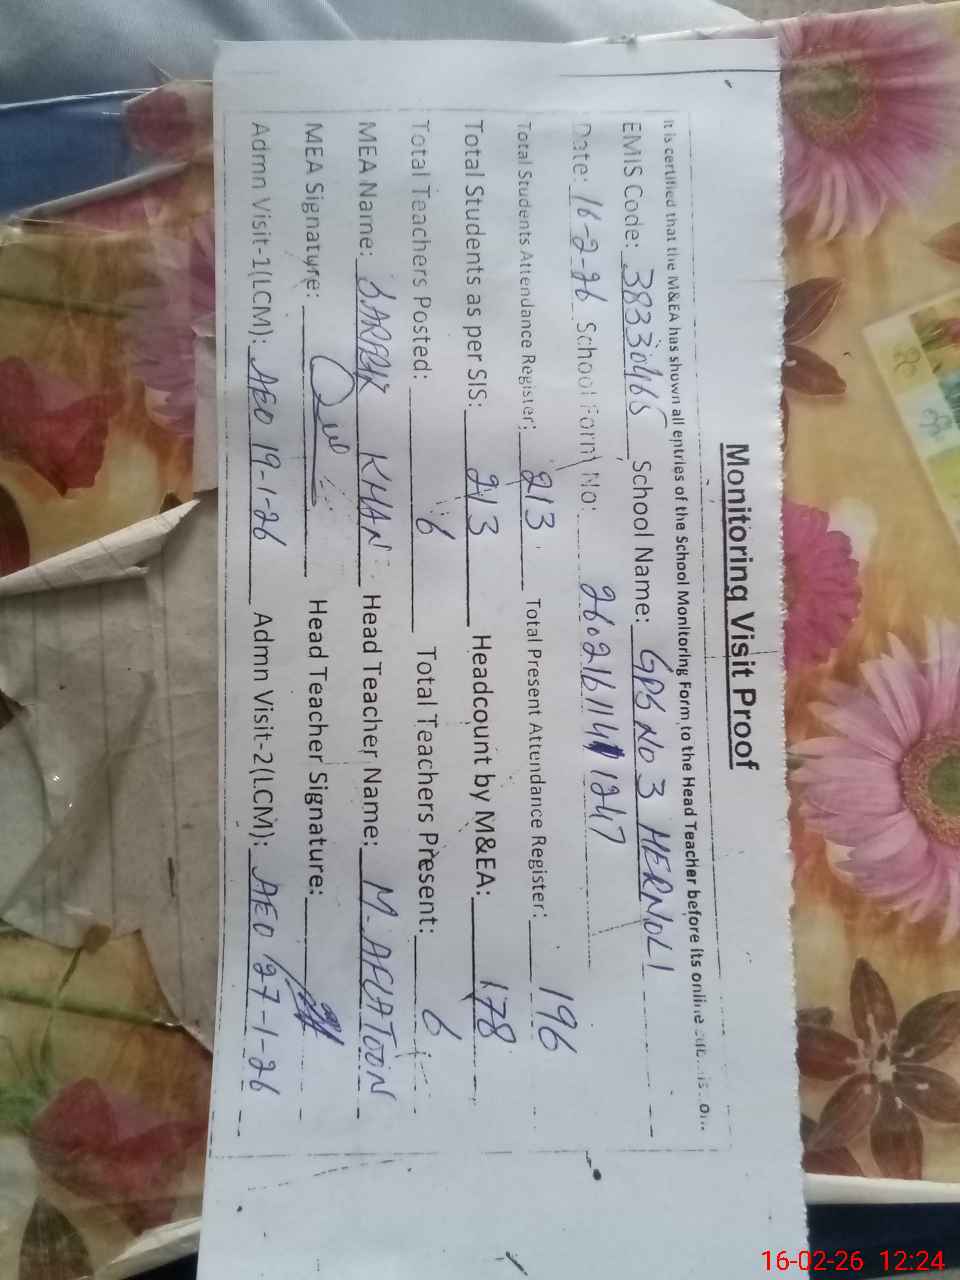 Monitoring Visit Proof
It is certified that the M&EA has shown all entries of the School Monitoring Form to the Head Teacher before its online
EMIS Code: 38330465 School Name: GPS NO 3 HERNOLI
Date: 16-2-26 School Form No: 1247
Total Students Attendance Register: 213 Total Present Attendance Register: 196
Total Students as per SIS: 213 Headcount by M&EA: 178
Total Teachers Posted: 6 Total Teachers Present: 6
MEA Name: KHAN Head Teacher Name: M. AFLATOON
MEA Signature: Head Teacher Signature:
Admn Visit-1(LCM): AEO 19-1-26 Admn Visit-2(LCM): AEO 27-1-26
16-02-26 12:24